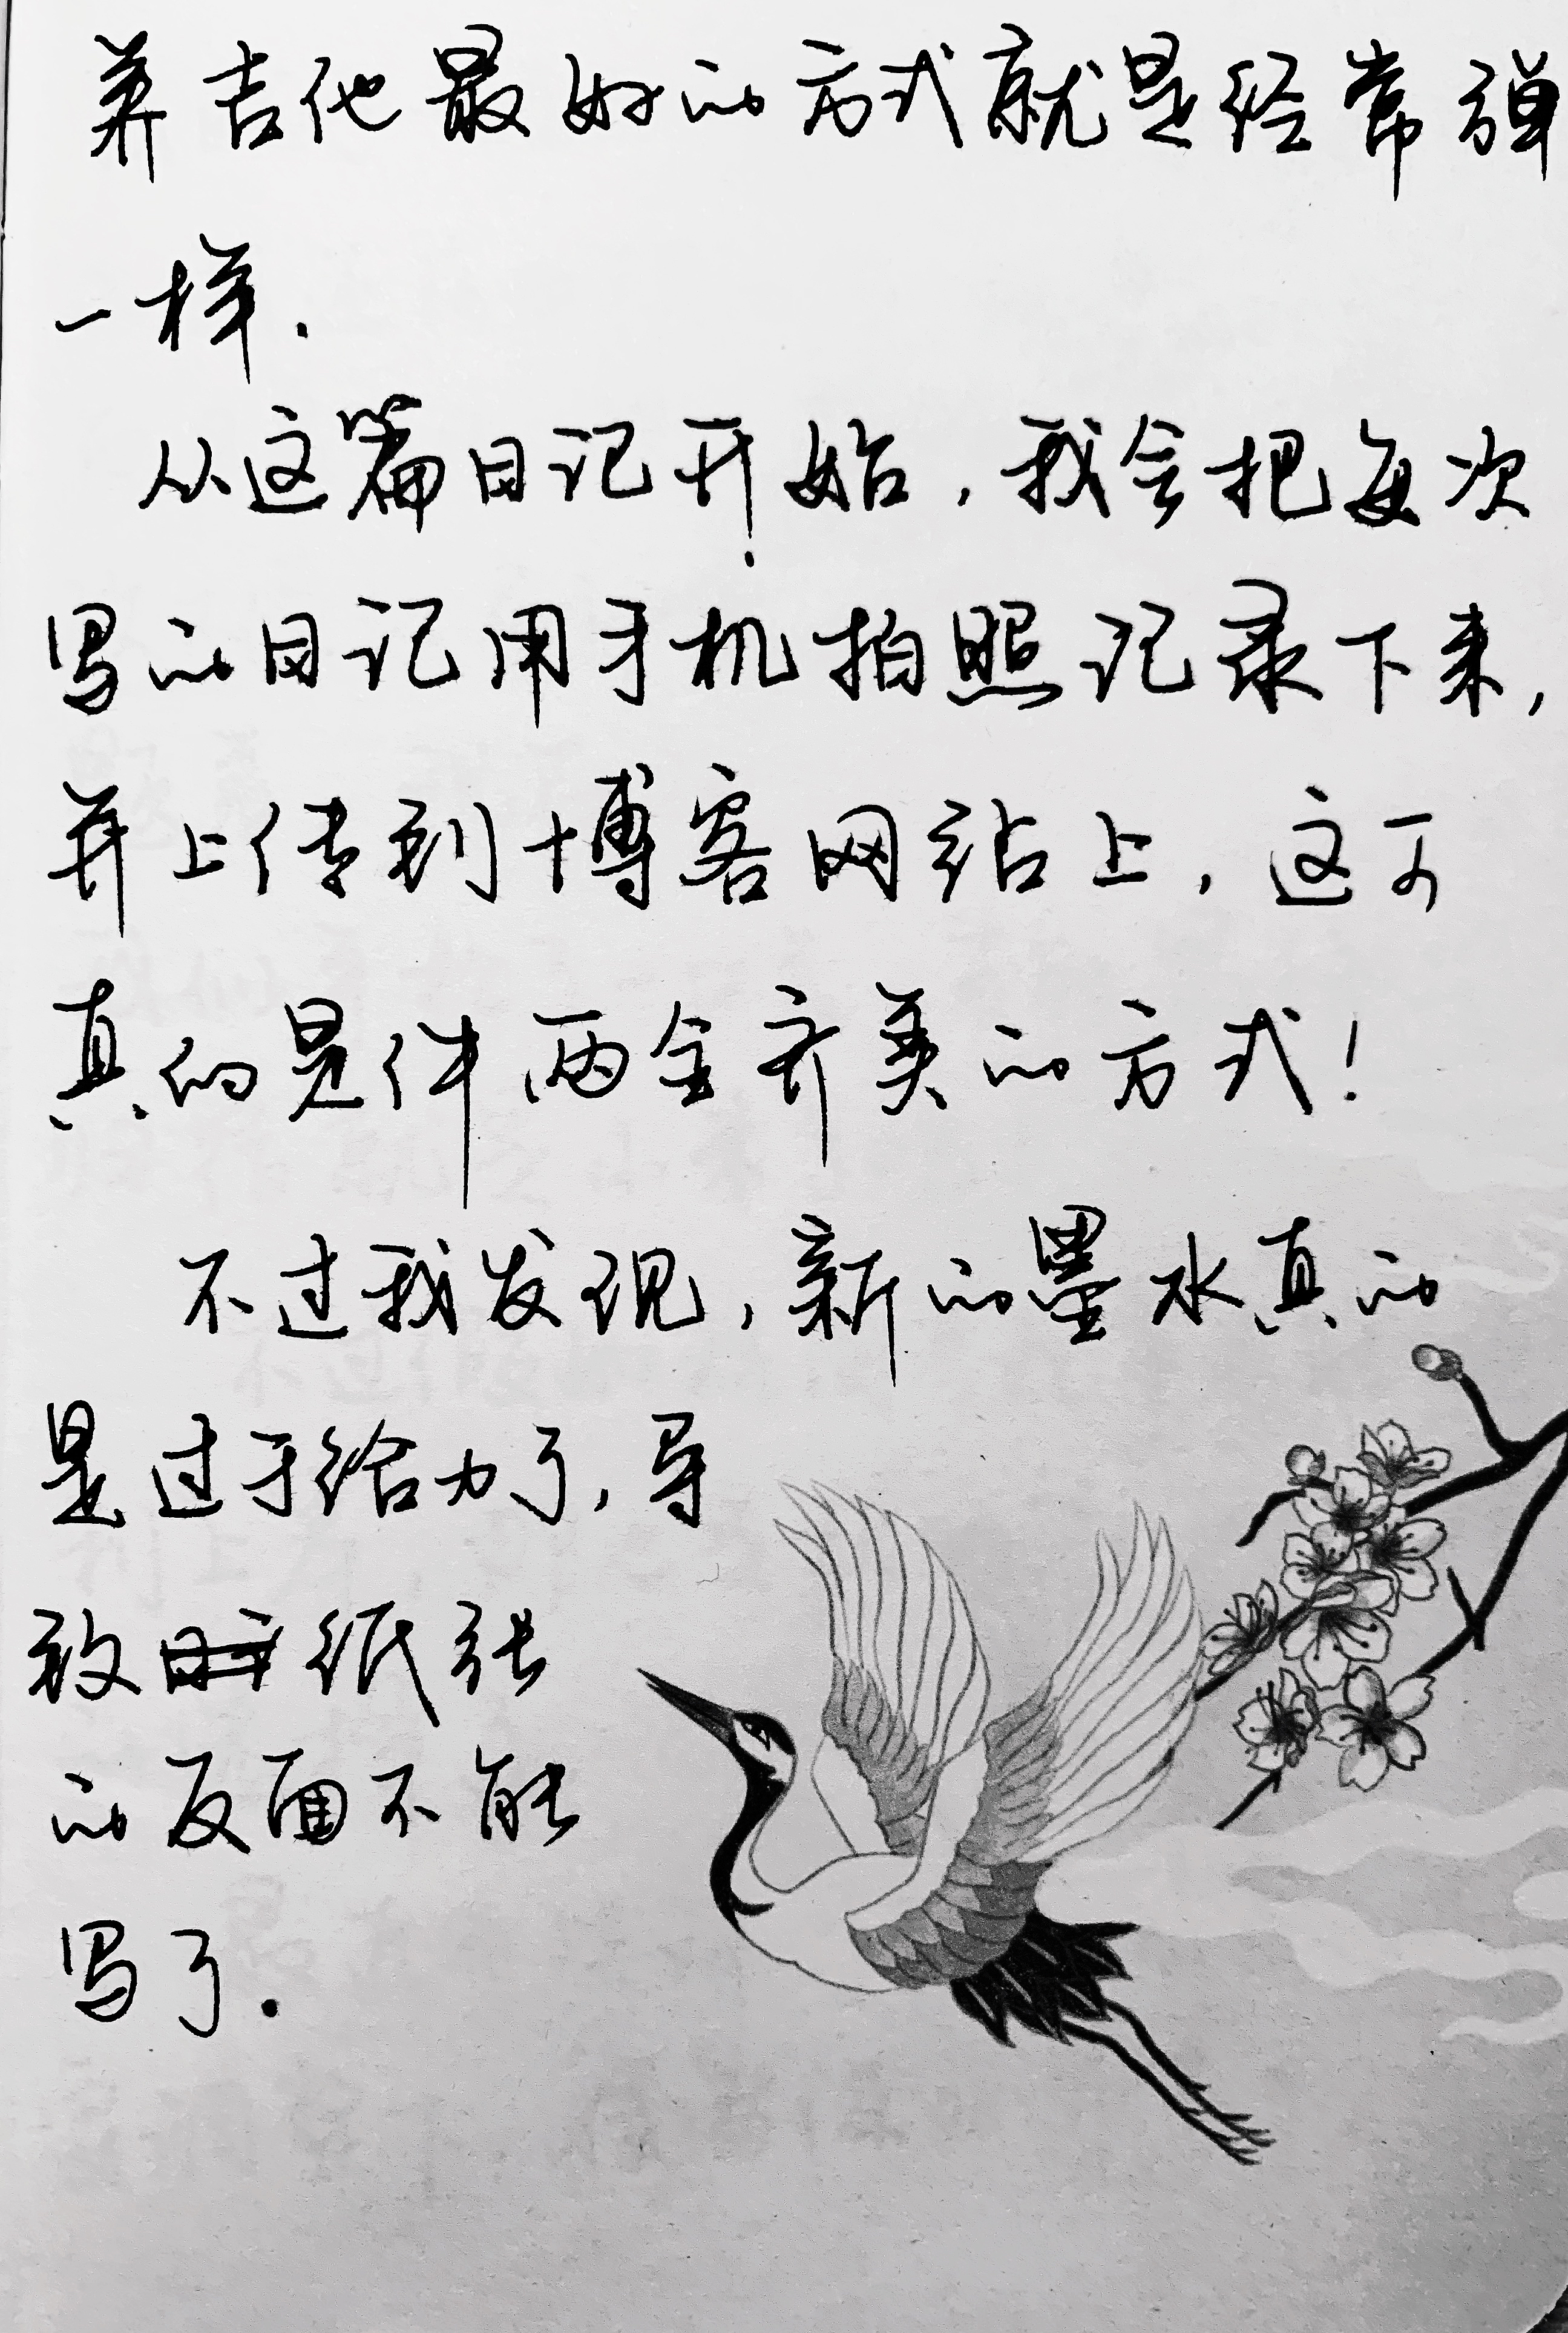 养吉他最好的方式就是经常弹
一样.
从这篇日记开始,我会把每次
写的日记用手机拍照记录下来,
并上传到博客网站上,这可
真的是件两全齐美的方式!
不过我发现,新的墨水真的
是过于给力了,导
致纸张
的反面不能
写了.